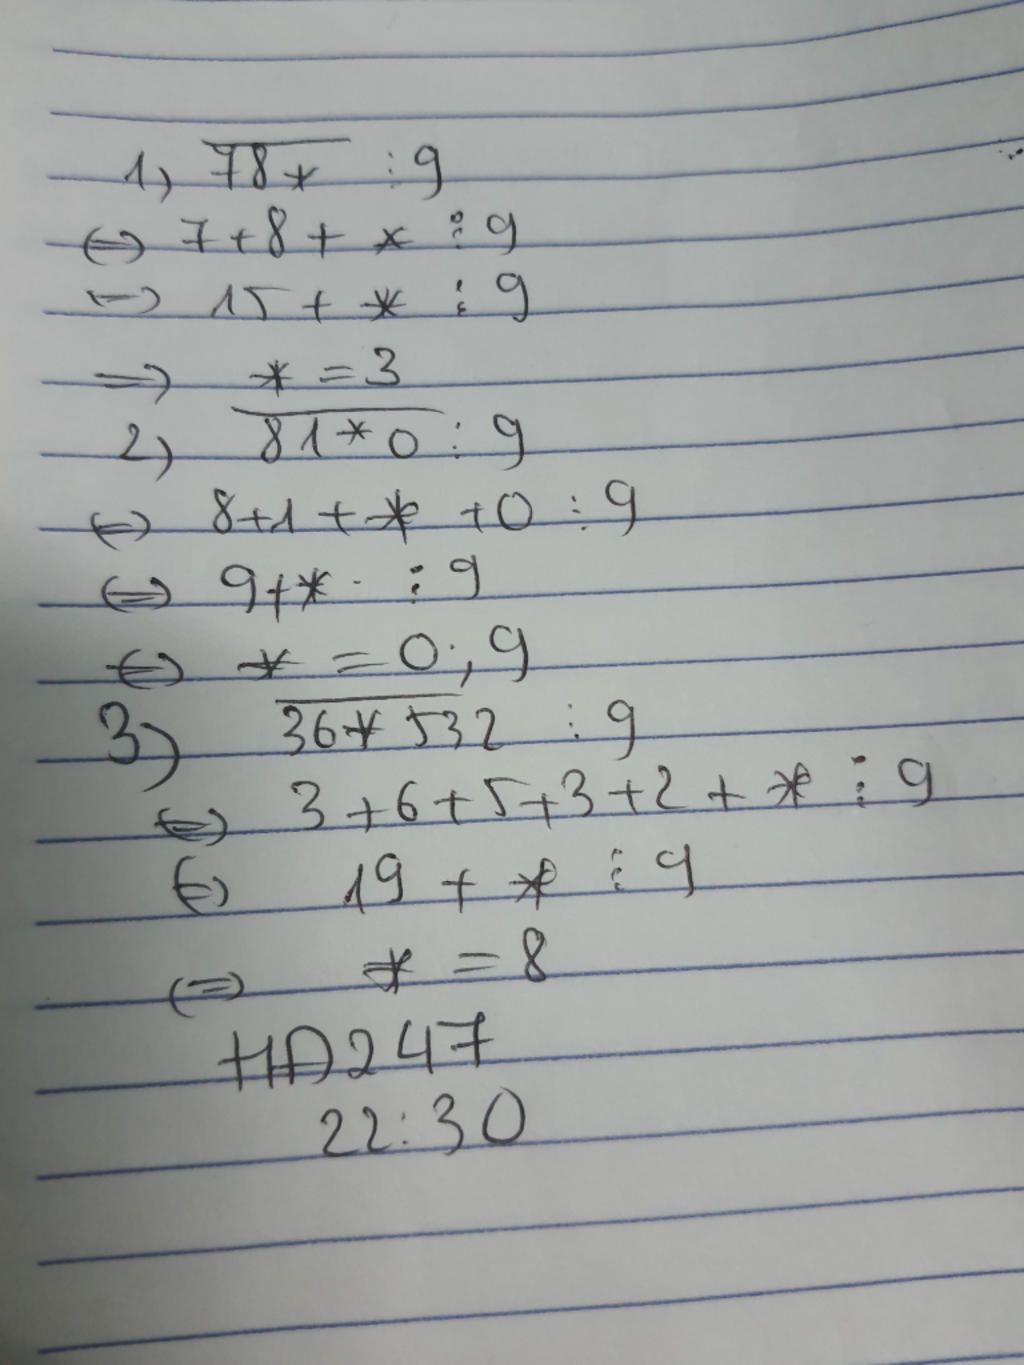 1) 78* ⋮ 9
⇔ 7+8+ * ⋮ 9
⇔ 15 + * ⋮ 9
⇒ * = 3
2) 81*0 ⋮ 9
⇔ 8+1+* +0 ⋮ 9
⇔ 9+* ⋮ 9
⇔ * = 0; 9
3) 36*532 ⋮ 9
⇔ 3+6+5+3+2+* ⋮ 9
⇔ 19 + * ⋮ 9
⇔ * = 8
HA247
22:30